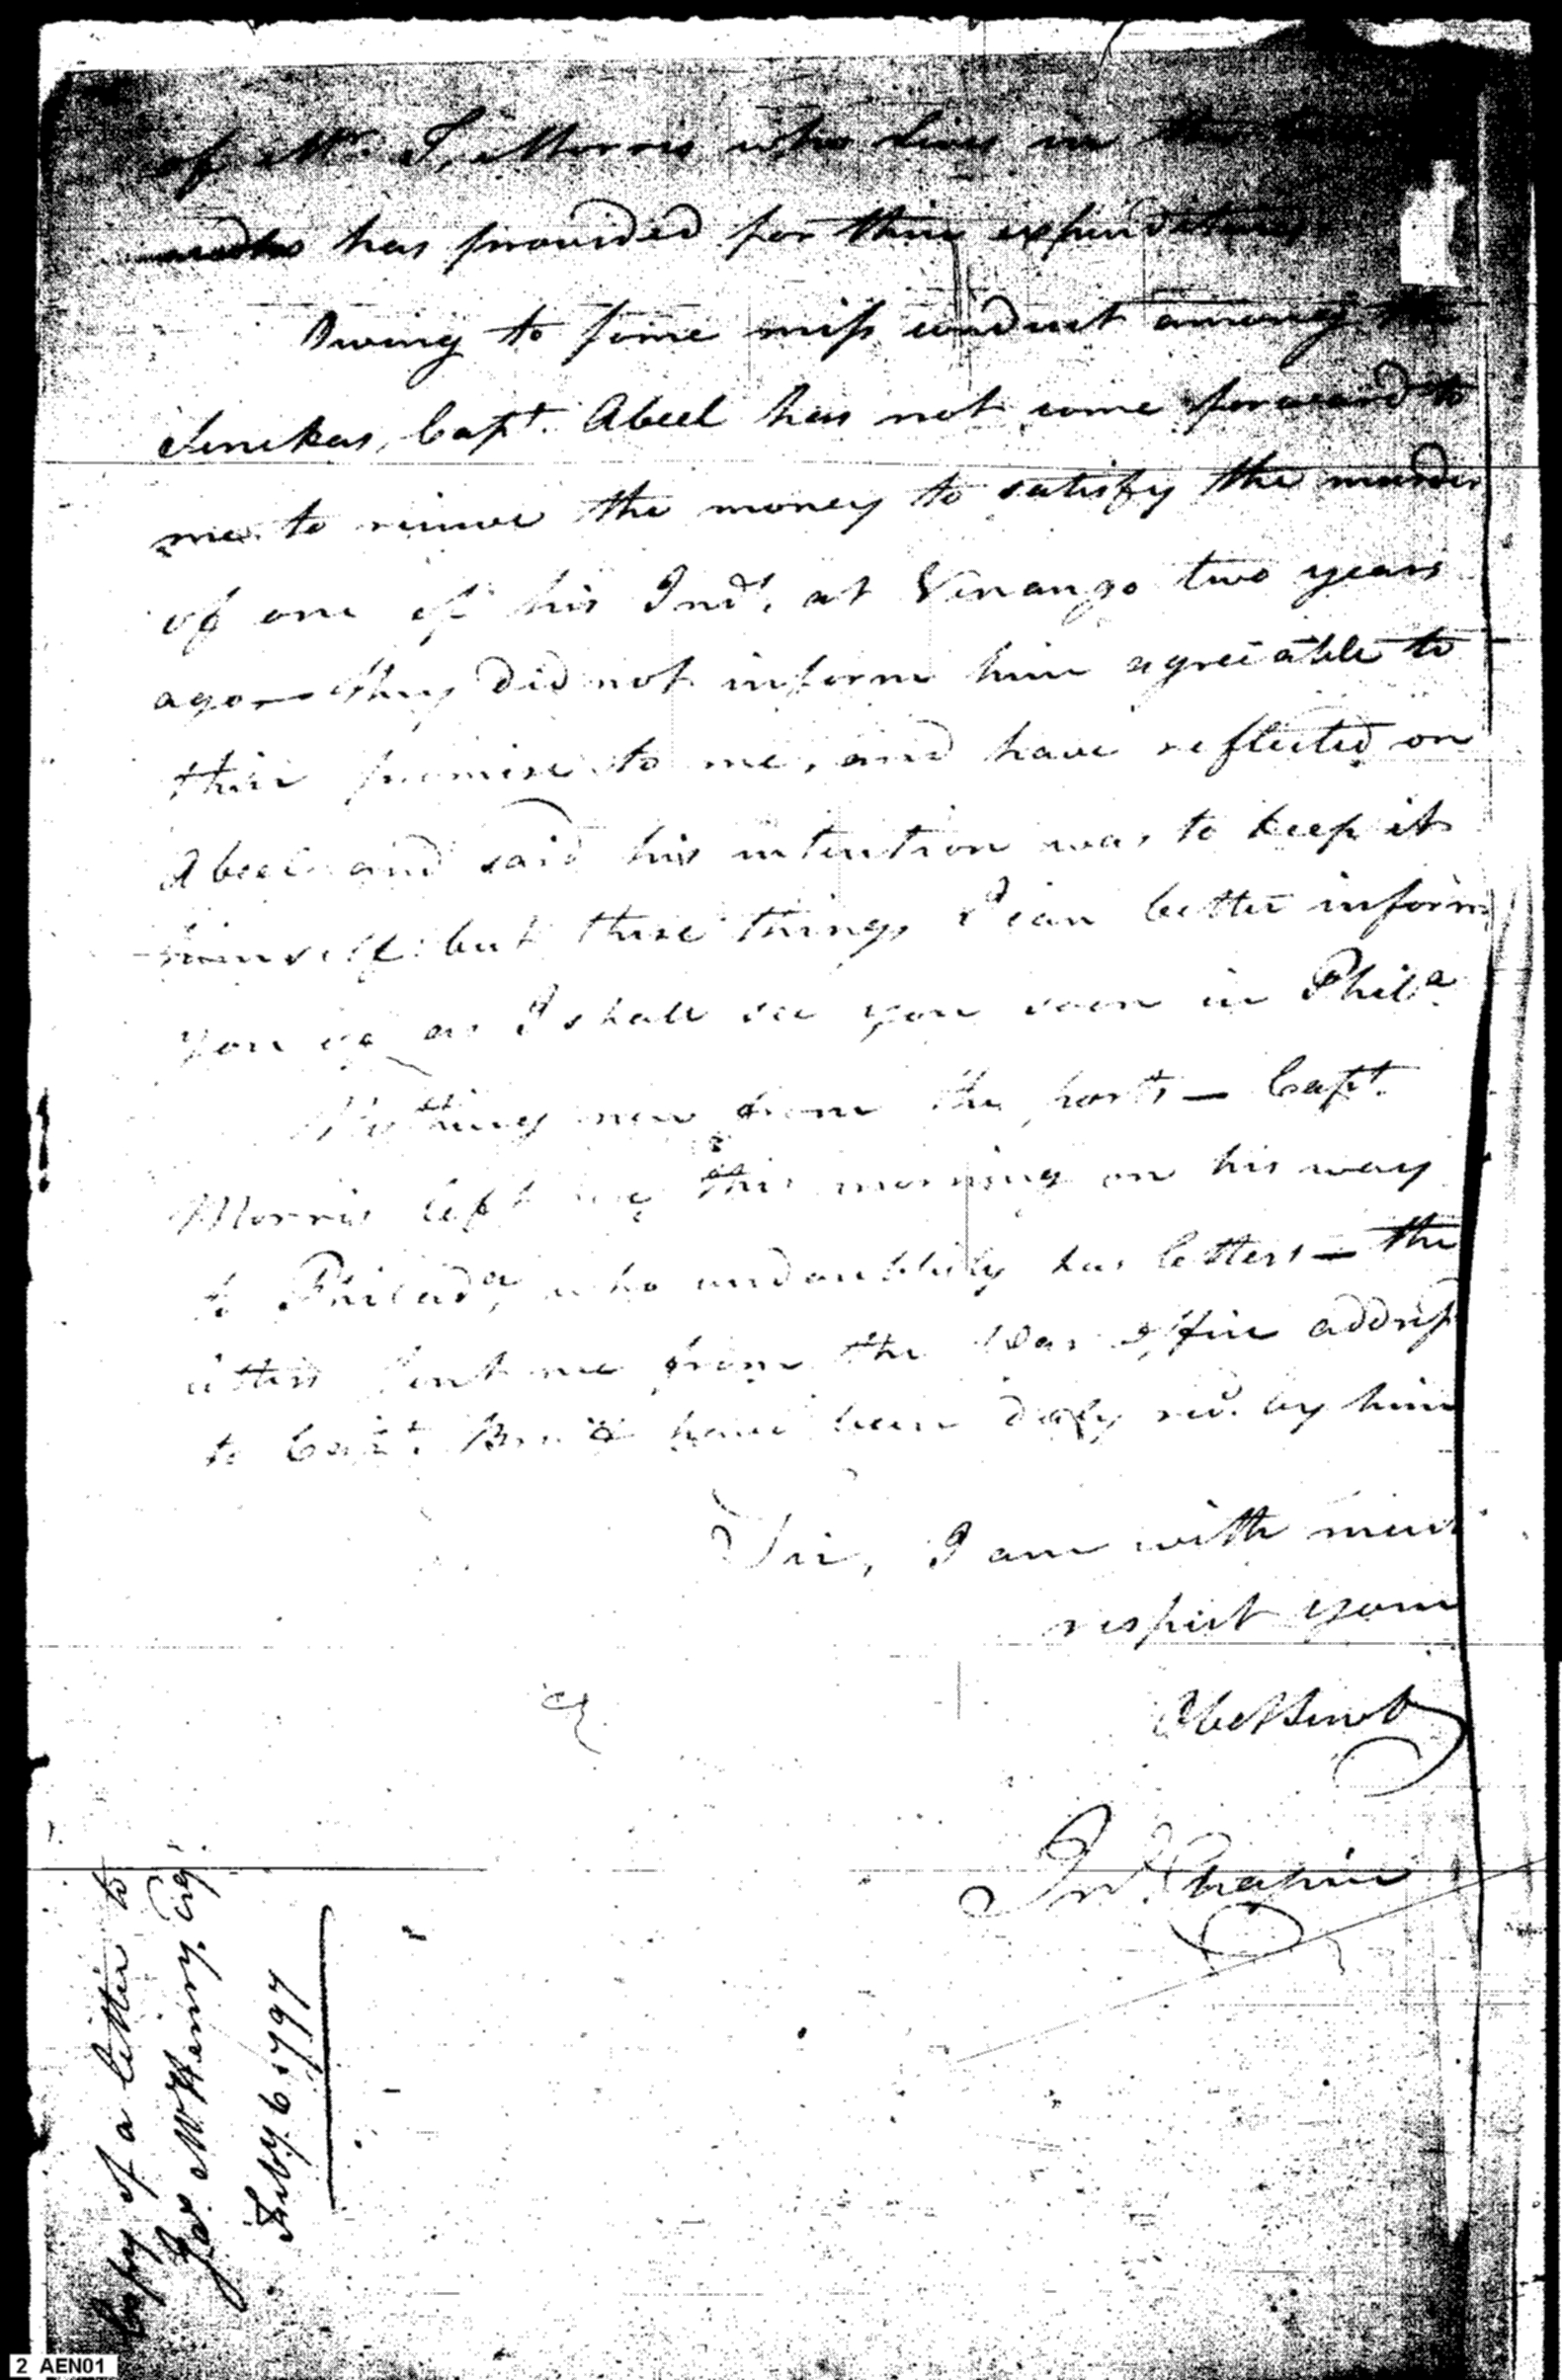 of Mr. T. Morris who lives in the
who has provided for their expenditures
Owing to some miss conduct among the
Senekas, Capt. Abeel has not come forward to
me to receive the money to satisfy the murder
of one of his Inds. at Venango two years
ago — they did not inform him agreeable to
their promise to me, and have reflected on
Abeel and said his intention was to keep it
himself: but these things I can better inform
you of as I shall see you soon in Phila.
Nothing new from the posts — Capt.
Morris left me this morning on his way
to Philada. who undoubtedly has letters — the
letters sent me from the War Office address
to Capt. Bru have been duly recd. by him
Sir, I am with much
respect your
Obet Servt
Isrl. Chapin
Copy of a letter to
Jas. McHenry, Esq.
Feby 6 1797
2 AEN01